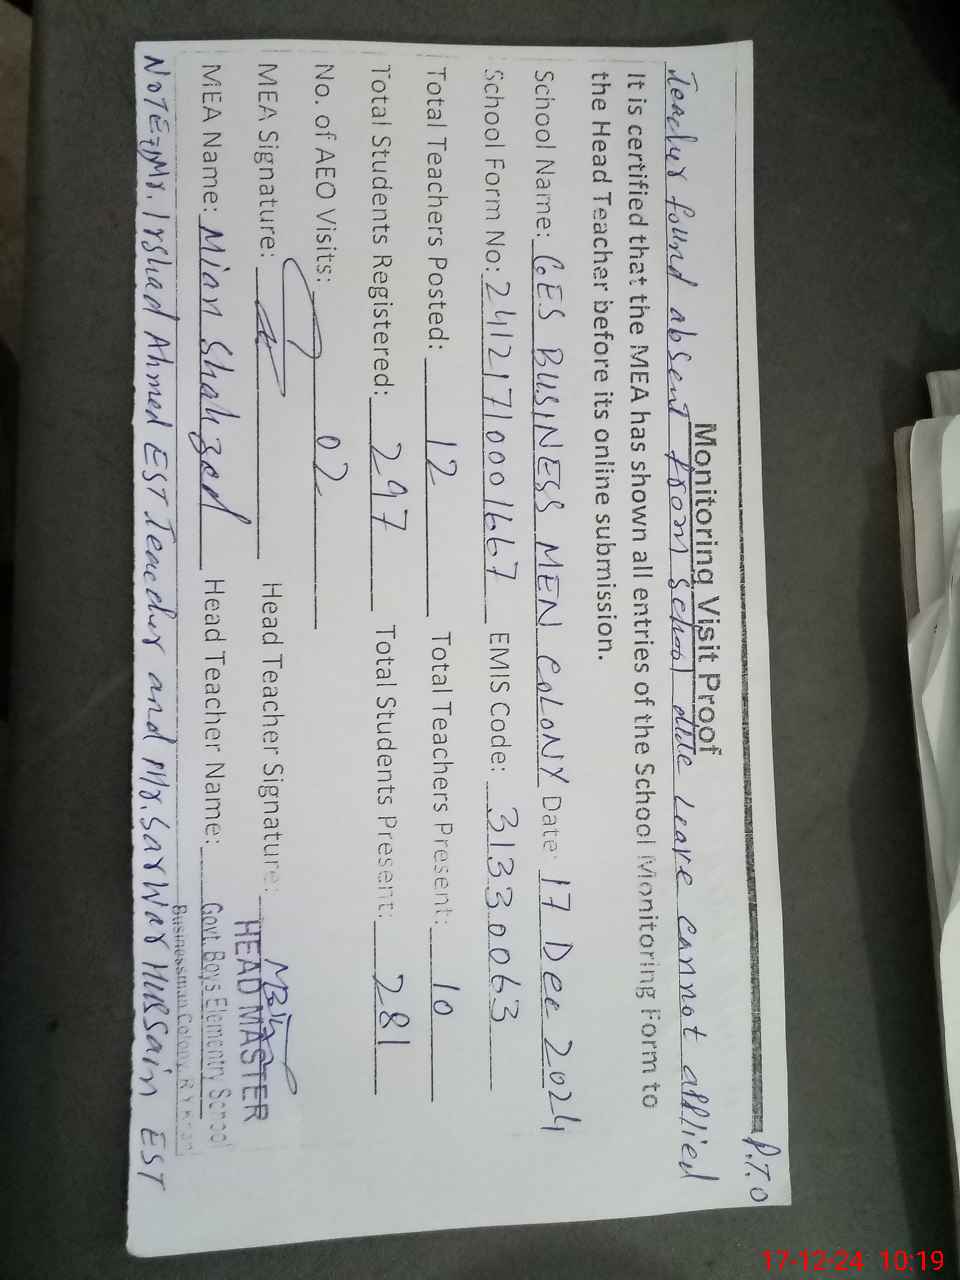 P.T.O
Monitoring Visit Proof
Teacher found absent from school dide leave cannot applied
It is certified that the MEA has shown all entries of the School Monitoring Form to
the Head Teacher before its online submission.
School Name: GES BUSINESS MEN COLONY Date: 17 Dec 2024
School Form No: 24121710001667 EMIS Code: 31330063
Total Teachers Posted: 12 Total Teachers Present: 10
Total Students Registered: 297 Total Students Present: 281
No. of AEO Visits: 02
MEA Signature: Head Teacher Signature:
HEAD MASTER
MEA Name: Mian Shahzad Head Teacher Name: Govt. Boys Elementry School
Businessman Colony, R.Y.Khan
NOTE:- Mr. Irshad Ahmed EST Teacher and Mr. Sarwar Hussain EST
17-12-24 10:19